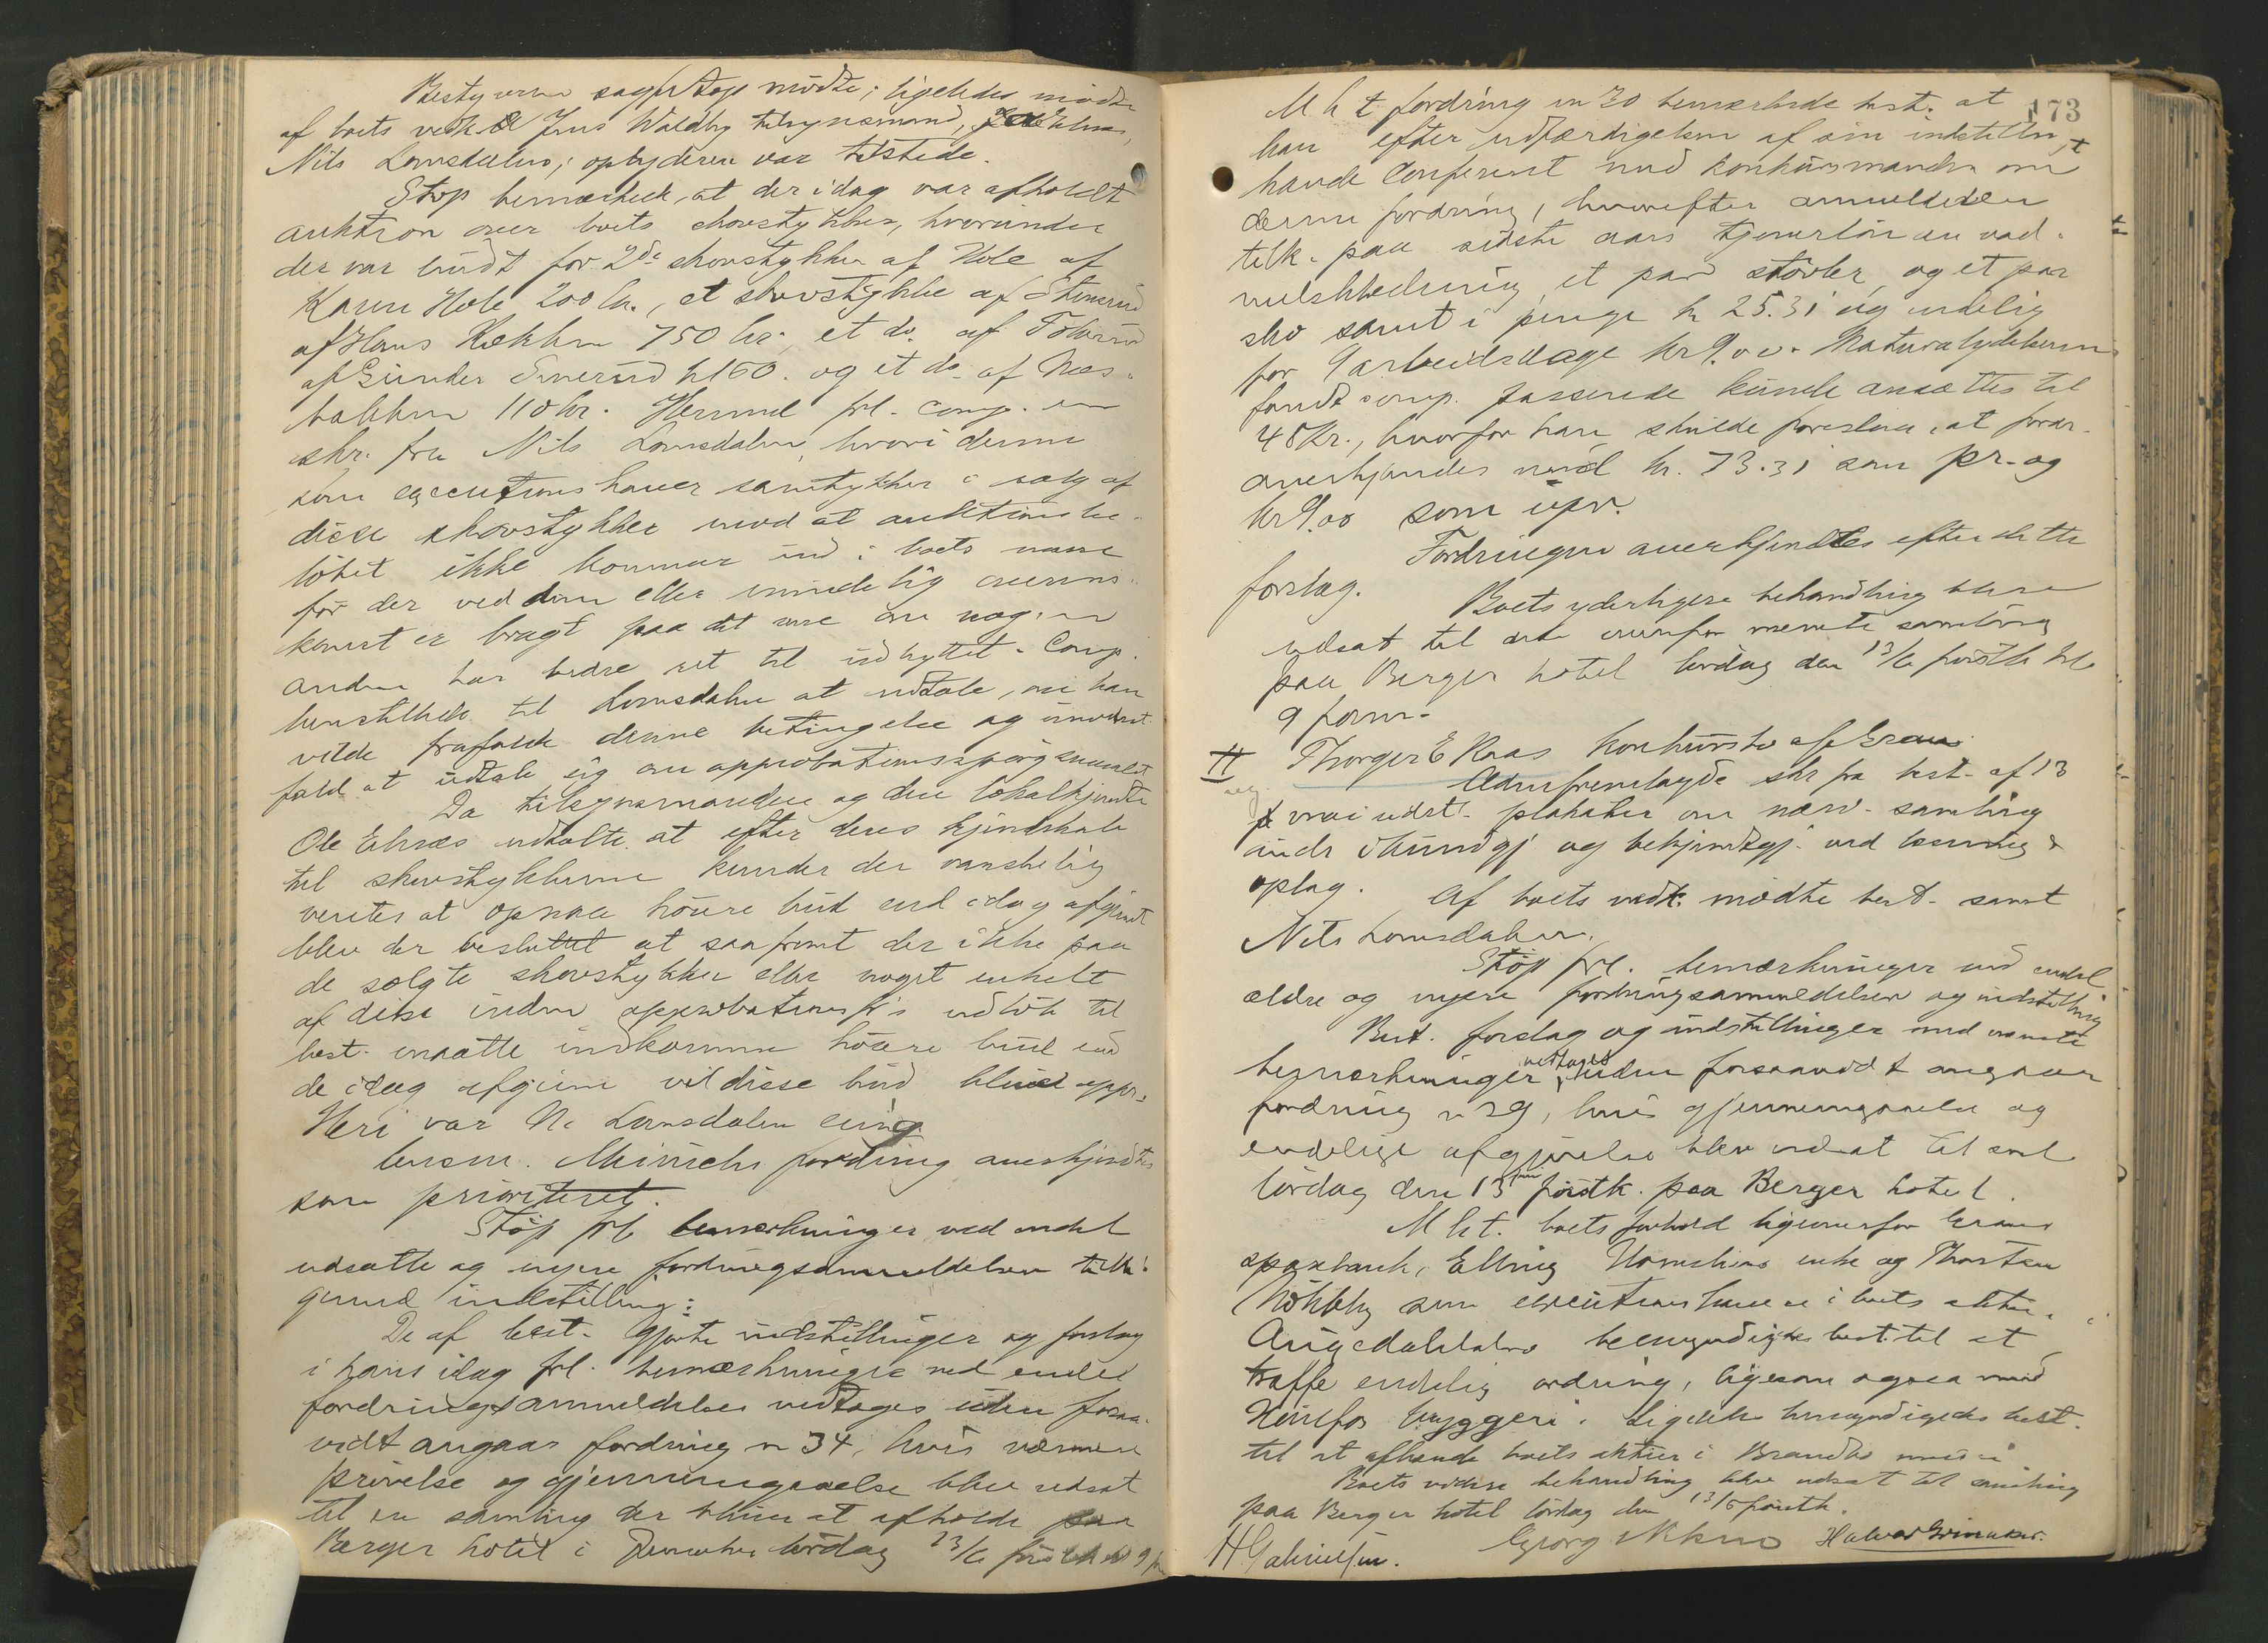 Bestyreren sagf. Støp mødte; ligeledes mødte
af boets vedk. Jens Waldby tilsynsmand,
Nils Lomsdalen; opbyderen var tilstede.
Støp bemærkede, at der idag var afholdt
auktion over boets skovstykker, hvorunder
der var budt for 2de skovstykker af Hole af
Karen Hole 200 kr., et skovstykke af Stensrud
af Hans Kekken 750 kr., et do. af
af Gunder kr 160. og et do. af Næs-
bakken 110 kr. Herved frl. comp. en
skr. fra Nils Lomsdalen, hvori denne
som executionshaver samtykker i salg af
disse skovstykker mod at auktionsbe-
løbet ikke kommer ind i boets masse
før der ved dom eller mindelig overens-
komst er bragt paa det rene om nogen
anden har bedre ret til udbyttet. Comp.
henstillede til Lomsdalen at udtale, om han
vilde frafalde denne betingelse og i modsat
fald at udtale sig om approbationsspørgsmaalet.
Da tilsynsmanden og den lokalkjendte
Ole Elnæs udtalte at efter deres kjendskab
til skovstykkerne kunde der vanskelig
ventes at opnaa høiere bud end idag afgivet
blev der besluttet at saafremt der ikke paa
de solgte skovstykker eller noget enkelt
af disse inden approbationsfr.s udløb til
best. maatte indkomme høiere bud end
de idag afgivne vil disse bud blive appr.
Heri var N. Lomsdalen enig
lensm. Meinichs fordring anerkjendtes
som prioriteret.
Støp frl. bemærkninger ved endel
udsatte og nyere fordringsanmeldelser tillige-
med indstilling:
De af best. gjorte indstillinger og forslag
i hans idag frl. bemærkninger ved endel
fordringsanmeldelser vedtoges uden forsaa-
vidt angaar fordring n 34, hvis nærmere
prøvelse og gjennemgaaelse blev udsat
til en samling der bliver at afholde paa
Berger hotel i lørdag 13/6 førstk kl 9 fm
173
M h t fordring nr 30 bemærkede best. at
han efter udfærdigelsen af sin indstilling
havde confereret med konkursmanden om
denne fordring, hvorefter anmelderen
tilk. paa sidste aars tjenerløn en vad-
melsklædning, et par støvler og et par
sko samt i penge kr 25.31 og endelig
for 9 arbeidsdage kr 9.00. Naturalydelserne
fandt comp. passende kunde ansættes til
48 kr., hvorfor han skulde foreslaa, at fordr.
anerkjendes med kr. 73.31 som pr. og
kr 9.00 som upr.
Fordringen anerkjendtes efter dette
forslag.
Boets yderligere behandling blev
udsat til den ovenfor nævnte samling
paa Berger hotel lørdag den 13/6 førstk kl
9 form.
II Thorger E Raas konkursbo af Gran
Adm fremlagde skr fra best. af 13
mai udst. plakater om nærv. samling
kundgj og bekjendtgj. ved læsning &
opslag.
Af boets vedk. mødte best. samt
Nils Lomsdalen.
Støp frl. bemærkninger ved endel
ældre og nyere fordringsanmeldelser og indstilling
Best. forslag og indstillinger med nævnte
bemærkninger vedtoges uden forsaavidt angaar
fordring n 29, hvis gjennemgaaelse og
endelige afgjørelse blev udsat til saml
lørdag den 13 juni førstk. paa Berger hotel.
M h t. boets forhold ligeoverfor Grans
sparebank, Elling enke og Thorsten
som executionshavere i boets aktier i
bemyndigedes best. til at
træffe endelig ordning, ligesom ogsaa med
bryggeri. Ligeledes bemyndigedes best.
til at afhænde boets aktier i Brandbo
Boets videre behandling blev udsat til samling
paa Berger hotel lørdag den 13/6 førstk.
H Gabrielsen. Georg Halvor Grinaker.